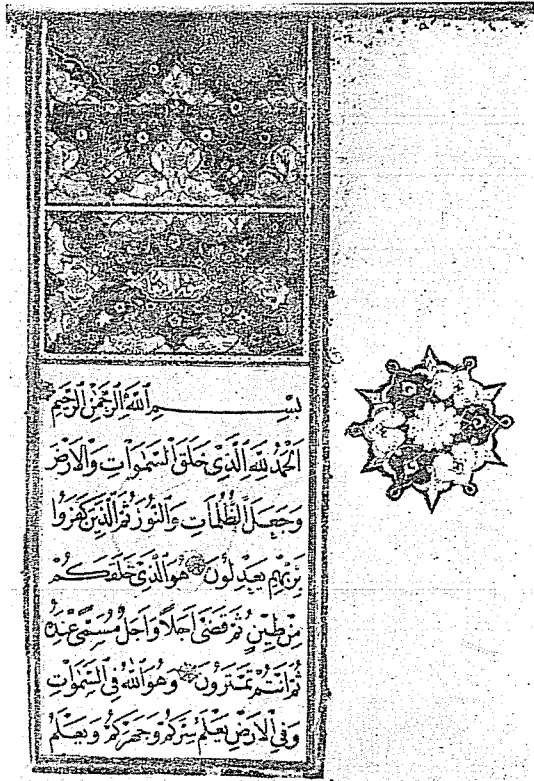 بِسْمِ اللّٰهِ الرَّحْمٰنِ الرَّحِيْمِ
اَلْحَمْدُ لِلّٰهِ الَّذِيْ خَلَقَ السَّمٰوَاتِ وَالْاَرْضَ
وَجَعَلَ الظُّلُمَاتِ وَالنُّوْرَ ثُمَّ الَّذِيْنَ كَفَرُوْا
بِرَبِّهِمْ يَعْدِلُوْنَ هُوَ الَّذِيْ خَلَقَكُمْ
مِنْ طِيْنٍ ثُمَّ قَضٰى اَجَلًا وَاَجَلٌ مُسَمًّى عِنْدَهُ
ثُمَّ اَنْتُمْ تَمْتَرُوْنَ وَهُوَ اللّٰهُ فِي السَّمٰوَاتِ
وَفِي الْاَرْضِ يَعْلَمُ سِرَّكُمْ وَجَهْرَكُمْ وَيَعْلَمُ